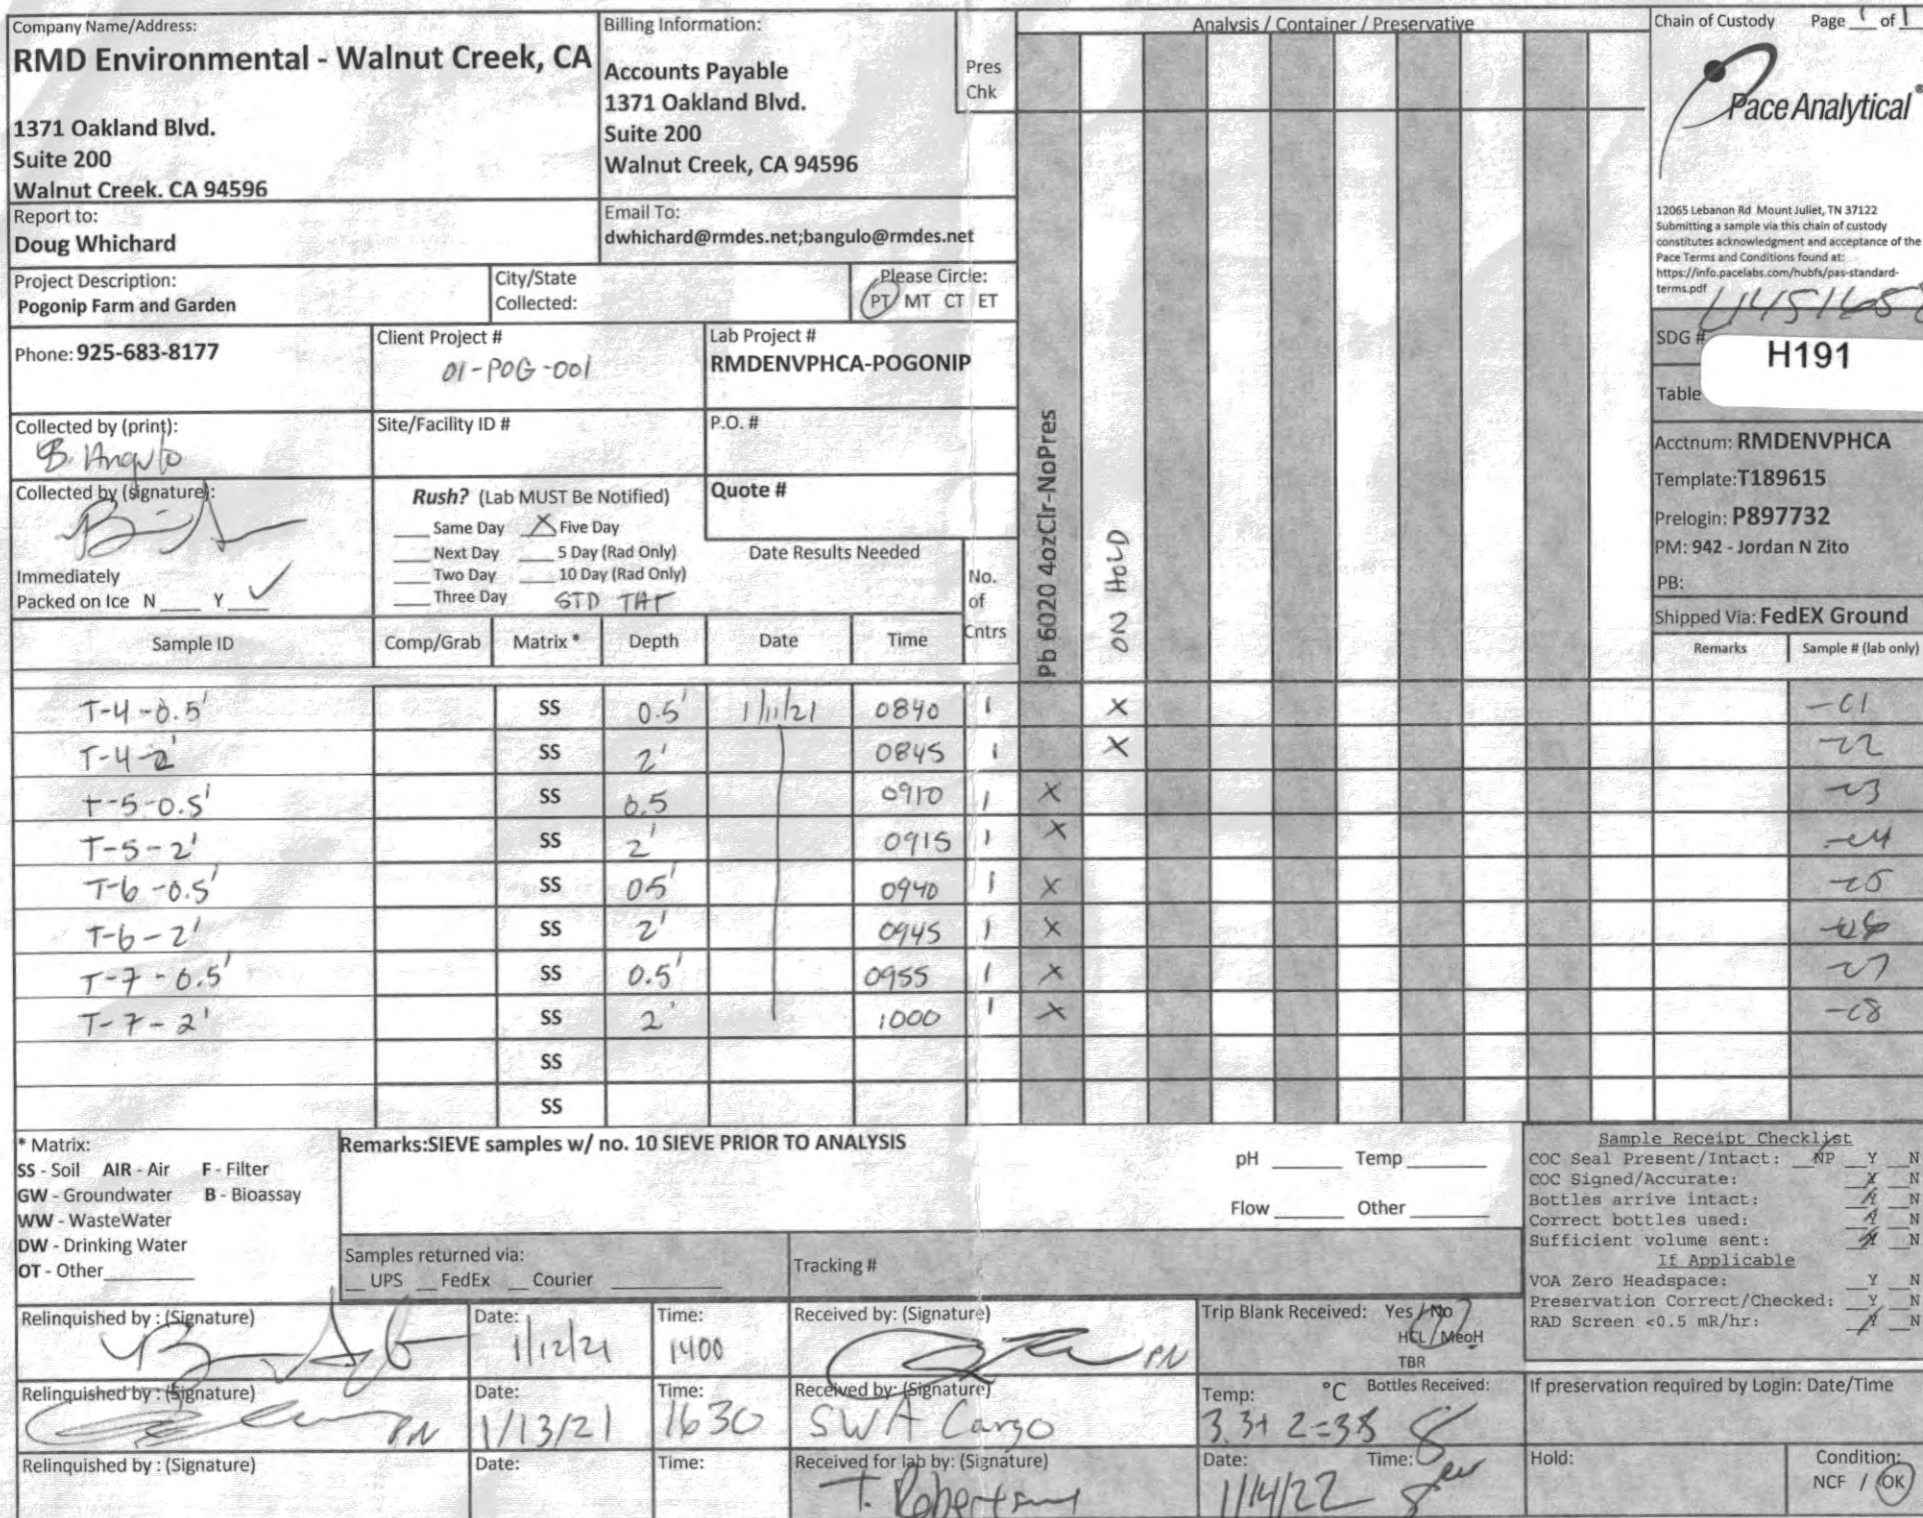 Company Name/Address:
RMD Environmental - Walnut Creek, CA
1371 Oakland Blvd.
Suite 200
Walnut Creek. CA 94596
Billing Information:
Accounts Payable
1371 Oakland Blvd.
Suite 200
Walnut Creek, CA 94596
Pres
Chk
Analysis / Container / Preservative
Chain of Custody Page 1 of 1
Pace Analytical®
12065 Lebanon Rd Mount Juliet, TN 37122
Submitting a sample via this chain of custody
constitutes acknowledgment and acceptance of the
Pace Terms and Conditions found at:
https://info.pacelabs.com/hubfs/pas-standard-
terms.pdf
Report to:
Doug Whichard
Email To:
dwhichard@rmdes.net;bangulo@rmdes.net
Project Description:
Pogonip Farm and Garden
City/State
Collected:
Please Circle:
PT MT CT ET
Phone: 925-683-8177
Client Project #
01-POG-001
Lab Project #
RMDENVPHCA-POGONIP
SDG #
H191
Table
Collected by (print):
B. Angulo
Site/Facility ID #
P.O. #
Acctnum: RMDENVPHCA
Template:T189615
Prelogin: P897732
PM: 942 - Jordan N Zito
PB:
Shipped Via: FedEX Ground
Collected by (signature):
Immediately
Packed on Ice N ___ Y ___ ✓
Rush? (Lab MUST Be Notified)
___ Same Day X Five Day
___ Next Day ___ 5 Day (Rad Only)
___ Two Day ___ 10 Day (Rad Only)
___ Three Day STD TAT
Quote #
Date Results Needed
No.
of
Cntrs
Pb 6020 4ozClr-NoPres
ON HOLD
Sample ID Comp/Grab Matrix * Depth Date Time Remarks Sample # (lab only)
T-4-0.5' SS 0.5' 1/11/21 0840 1 X -01
T-4-2' SS 2' 0845 1 X -02
T-5-0.5' SS 0.5 0910 1 X -03
T-5-2' SS 2' 0915 1 X -04
T-6-0.5' SS 05' 0940 1 X -05
T-6-2' SS 2' 0945 1 X -06
T-7-0.5' SS 0.5' 0955 1 X -07
T-7-2' SS 2' 1000 1 X -08
SS
SS
* Matrix:
SS - Soil AIR - Air F - Filter
GW - Groundwater B - Bioassay
WW - WasteWater
DW - Drinking Water
OT - Other
Remarks:SIEVE samples w/ no. 10 SIEVE PRIOR TO ANALYSIS
pH ___ Temp ___
Flow ___ Other ___
Samples returned via:
__ UPS __ FedEx __ Courier
Tracking #
Sample Receipt Checklist
COC Seal Present/Intact: __NP __Y __N
COC Signed/Accurate: Y __N
Bottles arrive intact: Y __N
Correct bottles used: Y __N
Sufficient volume sent: Y __N
If Applicable
VOA Zero Headspace: __Y __N
Preservation Correct/Checked: __Y __N
RAD Screen <0.5 mR/hr: Y __N
Relinquished by : (Signature)
Date: 1/12/21
Time: 1400
Received by: (Signature)
PN
Trip Blank Received: Yes / No
HCL / MeoH
TBR
Relinquished by : (Signature)
PN
Date: 1/13/21
Time: 1630
Received by: (Signature)
SWA Cargo
Temp: °C Bottles Received:
8
If preservation required by Login: Date/Time
Relinquished by : (Signature)
Date:
Time:
Received for lab by: (Signature)
T. Robertson
Date: 1/14/22
Time:
Hold:
Condition:
NCF / OK